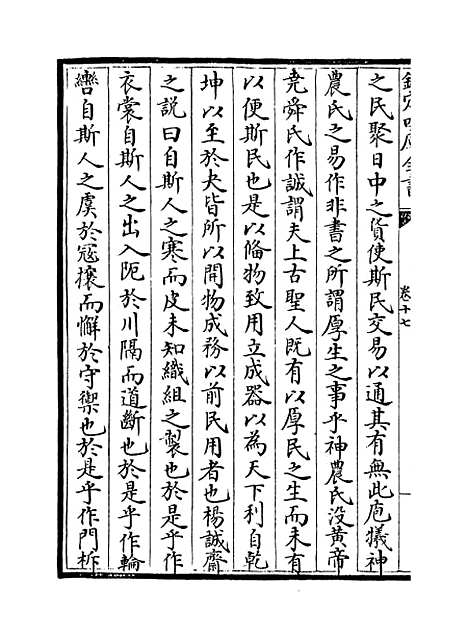 欽定四庫全書
卷十七
之民聚日中之貨使斯民交易以通其有無此庖犧神
農氏之易作非書之所謂厚生之事乎神農氏没黄帝
堯舜氏作誠謂夫上古聖人既有以厚民之生而未有
以便斯民也是以備物致用立成器以為天下利自乾
坤以至於夬皆所以開物成務以前民用者也楊誠齋
之説曰自斯人之寒而皮未知織組之製也於是乎作
衣裳自斯人之出入阨於川隔而道斷也於是乎作輪
轡自斯人之虞於冦攘而懈於守禦也於是乎作門柝